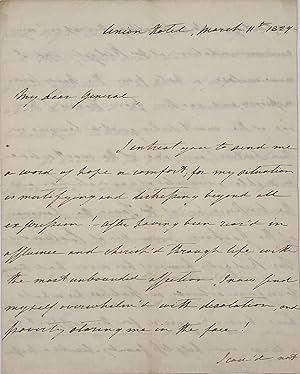 Union Hotel, March 11th 1829.
My dear General,
I entreat you to send me
a word of hope or comfort, for my situation
is mortifying and distressing beyond all
expression! – after having been rear'd in
affluence and cherish'd through life with
the most unbounded affection, I now find
myself overwhelm'd with desolation, and
poverty staring me in the face!
I could not